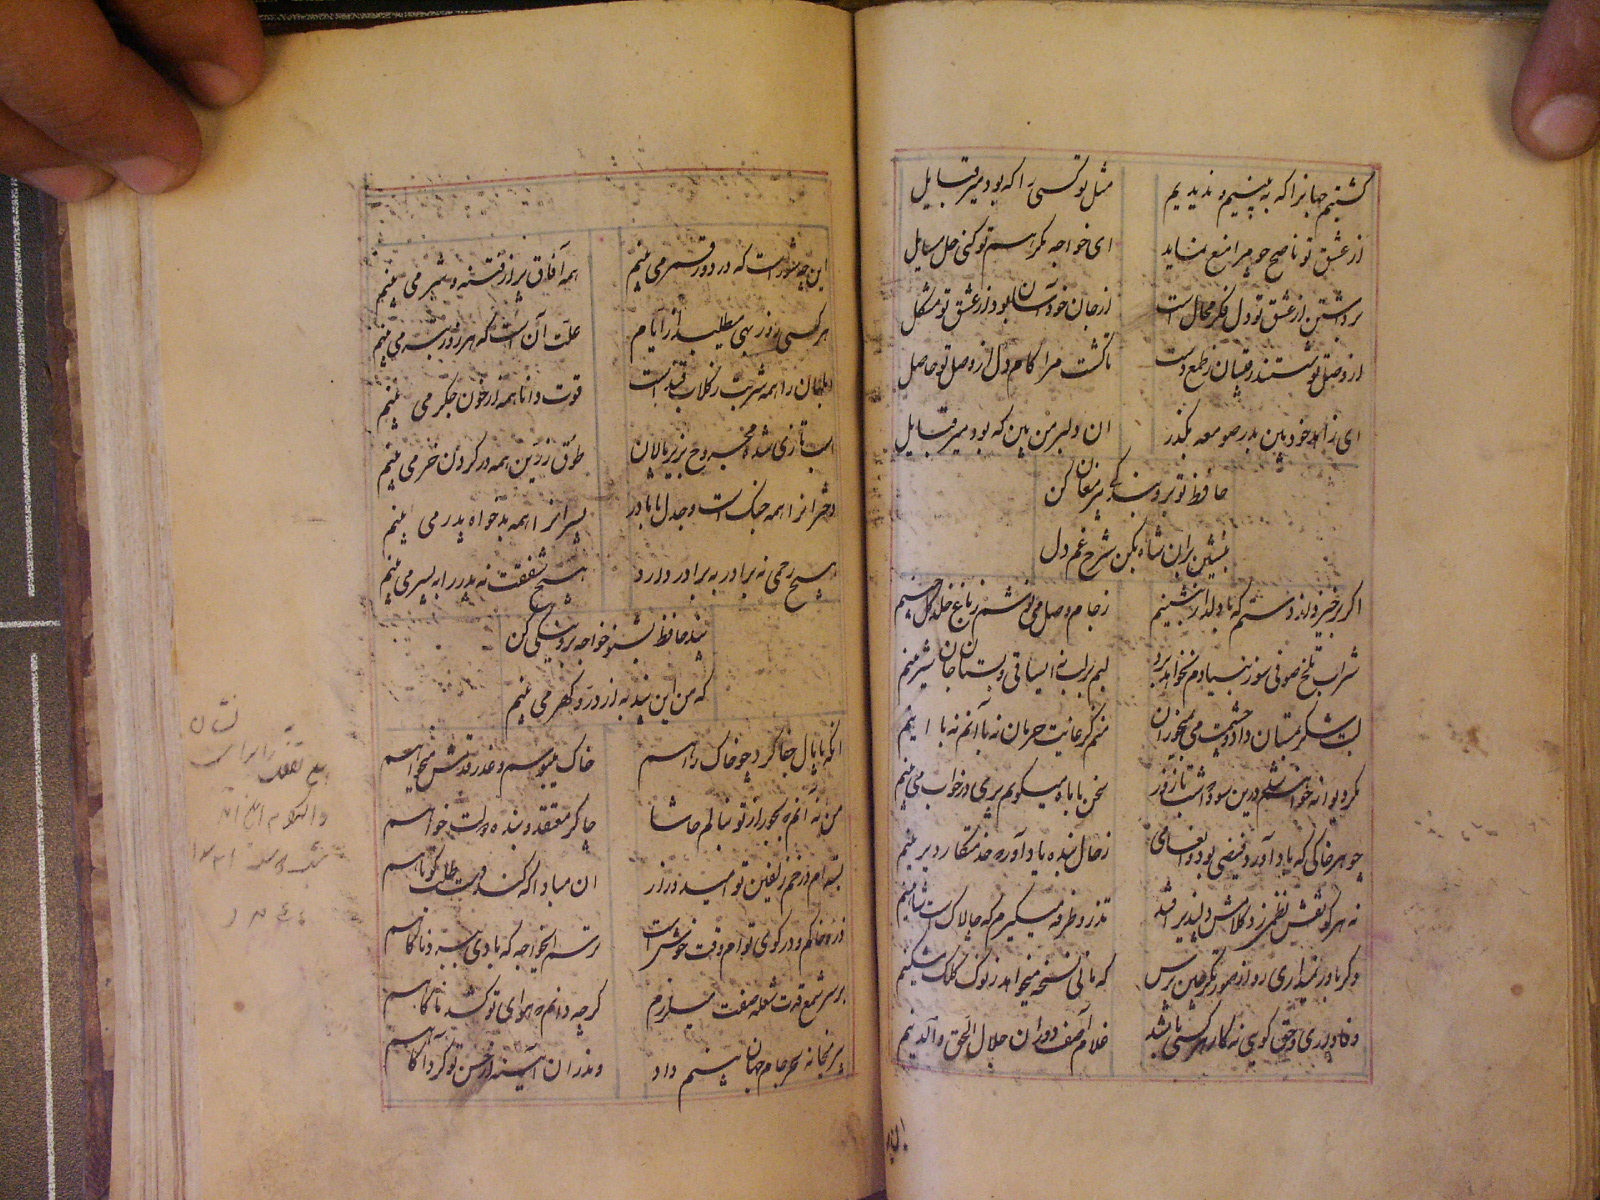 گشتیم جهانرا که به بینیم و ندیدیم مثل تو کسی را که بود میر قبایل
از عشق تو ناصح چو مرا منع نماید ای خواجه مکرر هم تو کنی حل مسایل
برداشتن از عشق تو دل فکر محال است از جان خود آسان بود از عشق تو مشکل
از وصل تو شستند رقیبان ز طمع دست تا گشت مرا کام دل از وصل تو حاصل
ای زاهد خودبین بدر صومعه بگذر ان دلبر من بین که بود میر قبایل
حافظ تو برو بندگی پیر مغان کن
بنشین بر ان شاه بکن شرح غم دل
اگر برخیزد از دستم که با دلدار بنشینم ز جام وصل می نوشم ز باغ خلد گل چینم
شراب تلخ صوفی سوز بنیادم بخواهد برد لبم بر لب نه ای ساقی و بستان جان شیرینم
لبت شکر بمستان داد و چشمت می بمیخوران منم کز غایت حرمان نه با آنم نه با اینم
مگر دیوانه خواهم شد درین سودا که شب تا روز سخن با ماه میگویم پری در خواب می بینم
چو هر خاکی که باد آورد فیضی بود ز انعامی ز حال بنده یاد آور که خدمتکار دیرینم
نه هر کو نقش نظمی زد کلامش دلپذیر افتد تذرو طرفه میگیرم که چالاک است شاهینم
وگر باور نمیداری رو از صورتگر چین پرس که مانی نسخه میخواهد ز نوک کلک مشکینم
وفاداری و حق گوئی نه کار هر کسی باشد غلام آصف دوران جلال الحق و الدینم
این چه شور است که در دور قمر می بینم همه آفاق پر از فتنه و شر می بینم
هر کسی روز بهی میطلبد از ایام علت آن است که هر روز بتر می بینم
ابلهان را همه شربت ز گلاب و قند است قوت دانا همه از خون جگر می بینم
اسب تازی شده مجروح بزیر پالان طوق زرین همه در گردن خر می بینم
دخترانرا همه جنگ است و جدل با مادر پسرانرا همه بدخواه پدر می بینم
هیچ رحمی نه برادر به برادر دارد هیچ شفقت نه پدر را به پسر می بینم
پند حافظ بشنو خواجه برو نیکی کن
که من این پند به از در و گهر می بینم
انکه پامال جفا کرد چو خاک راهم خاک میبوسم و عذر قدمش میخواهم
من نه آنم که بجور از تو بنالم حاشا چاکر معتقد و بنده دولت خواهم
بسته ام در خم زلفین تو امید دراز ان مبادا که کند دست طلب کوتاهم
ذره خاکم و در کوی تو ام وقت خوش است ترسم ای خواجه که بادی ببرد ناگاهم
بر سر شمع قدت شعله صفت میلرزم گرچه دانم که هوای تو کشد ناگاهم
پیر میخانه سحر جام جهان بینم داد وندر ان آیینه از حسن تو کرد آگاهم